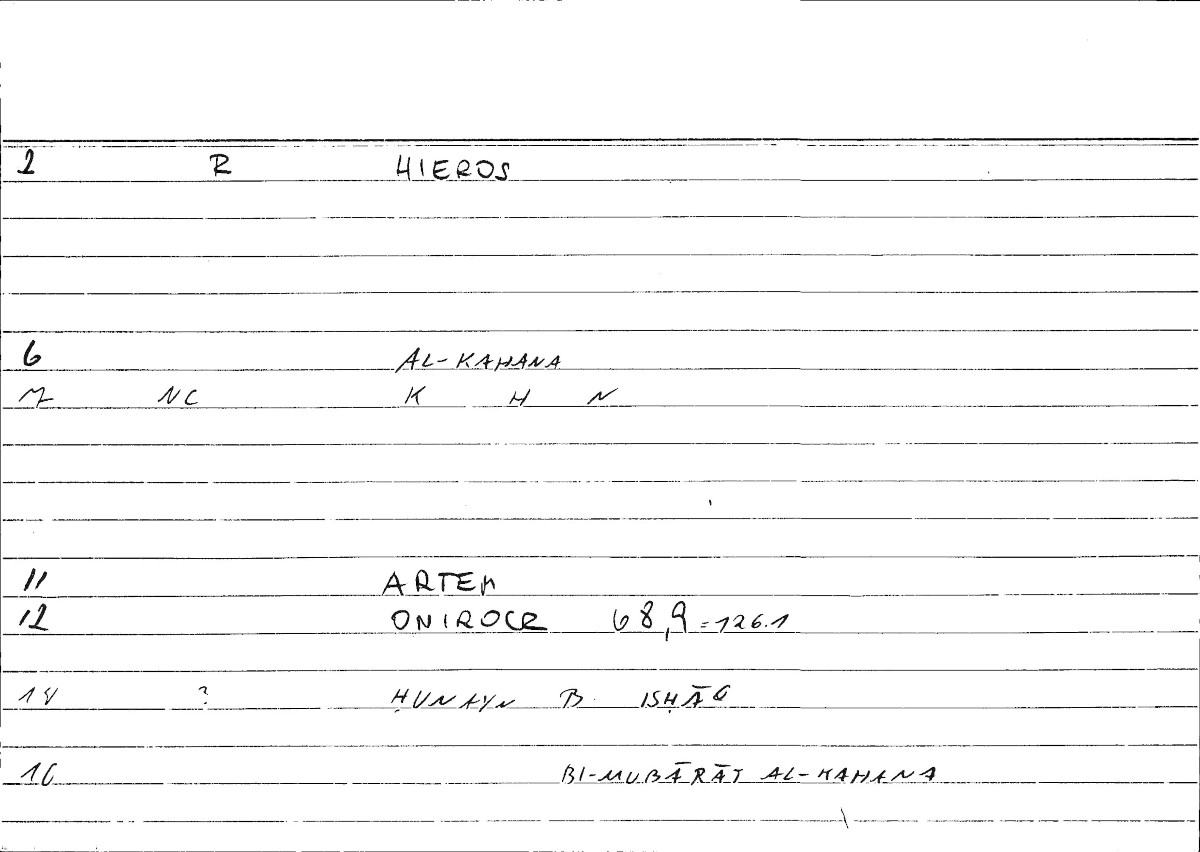 2 R HIEROS
6 AL-KAHANA
7 NC K H N
11 ARTEM
12 ONIROCR 68,9 = 126.1
14 ? ḤUNAYN B. ISḤĀQ
16 BI-MUBĀRĀT AL-KAHANA